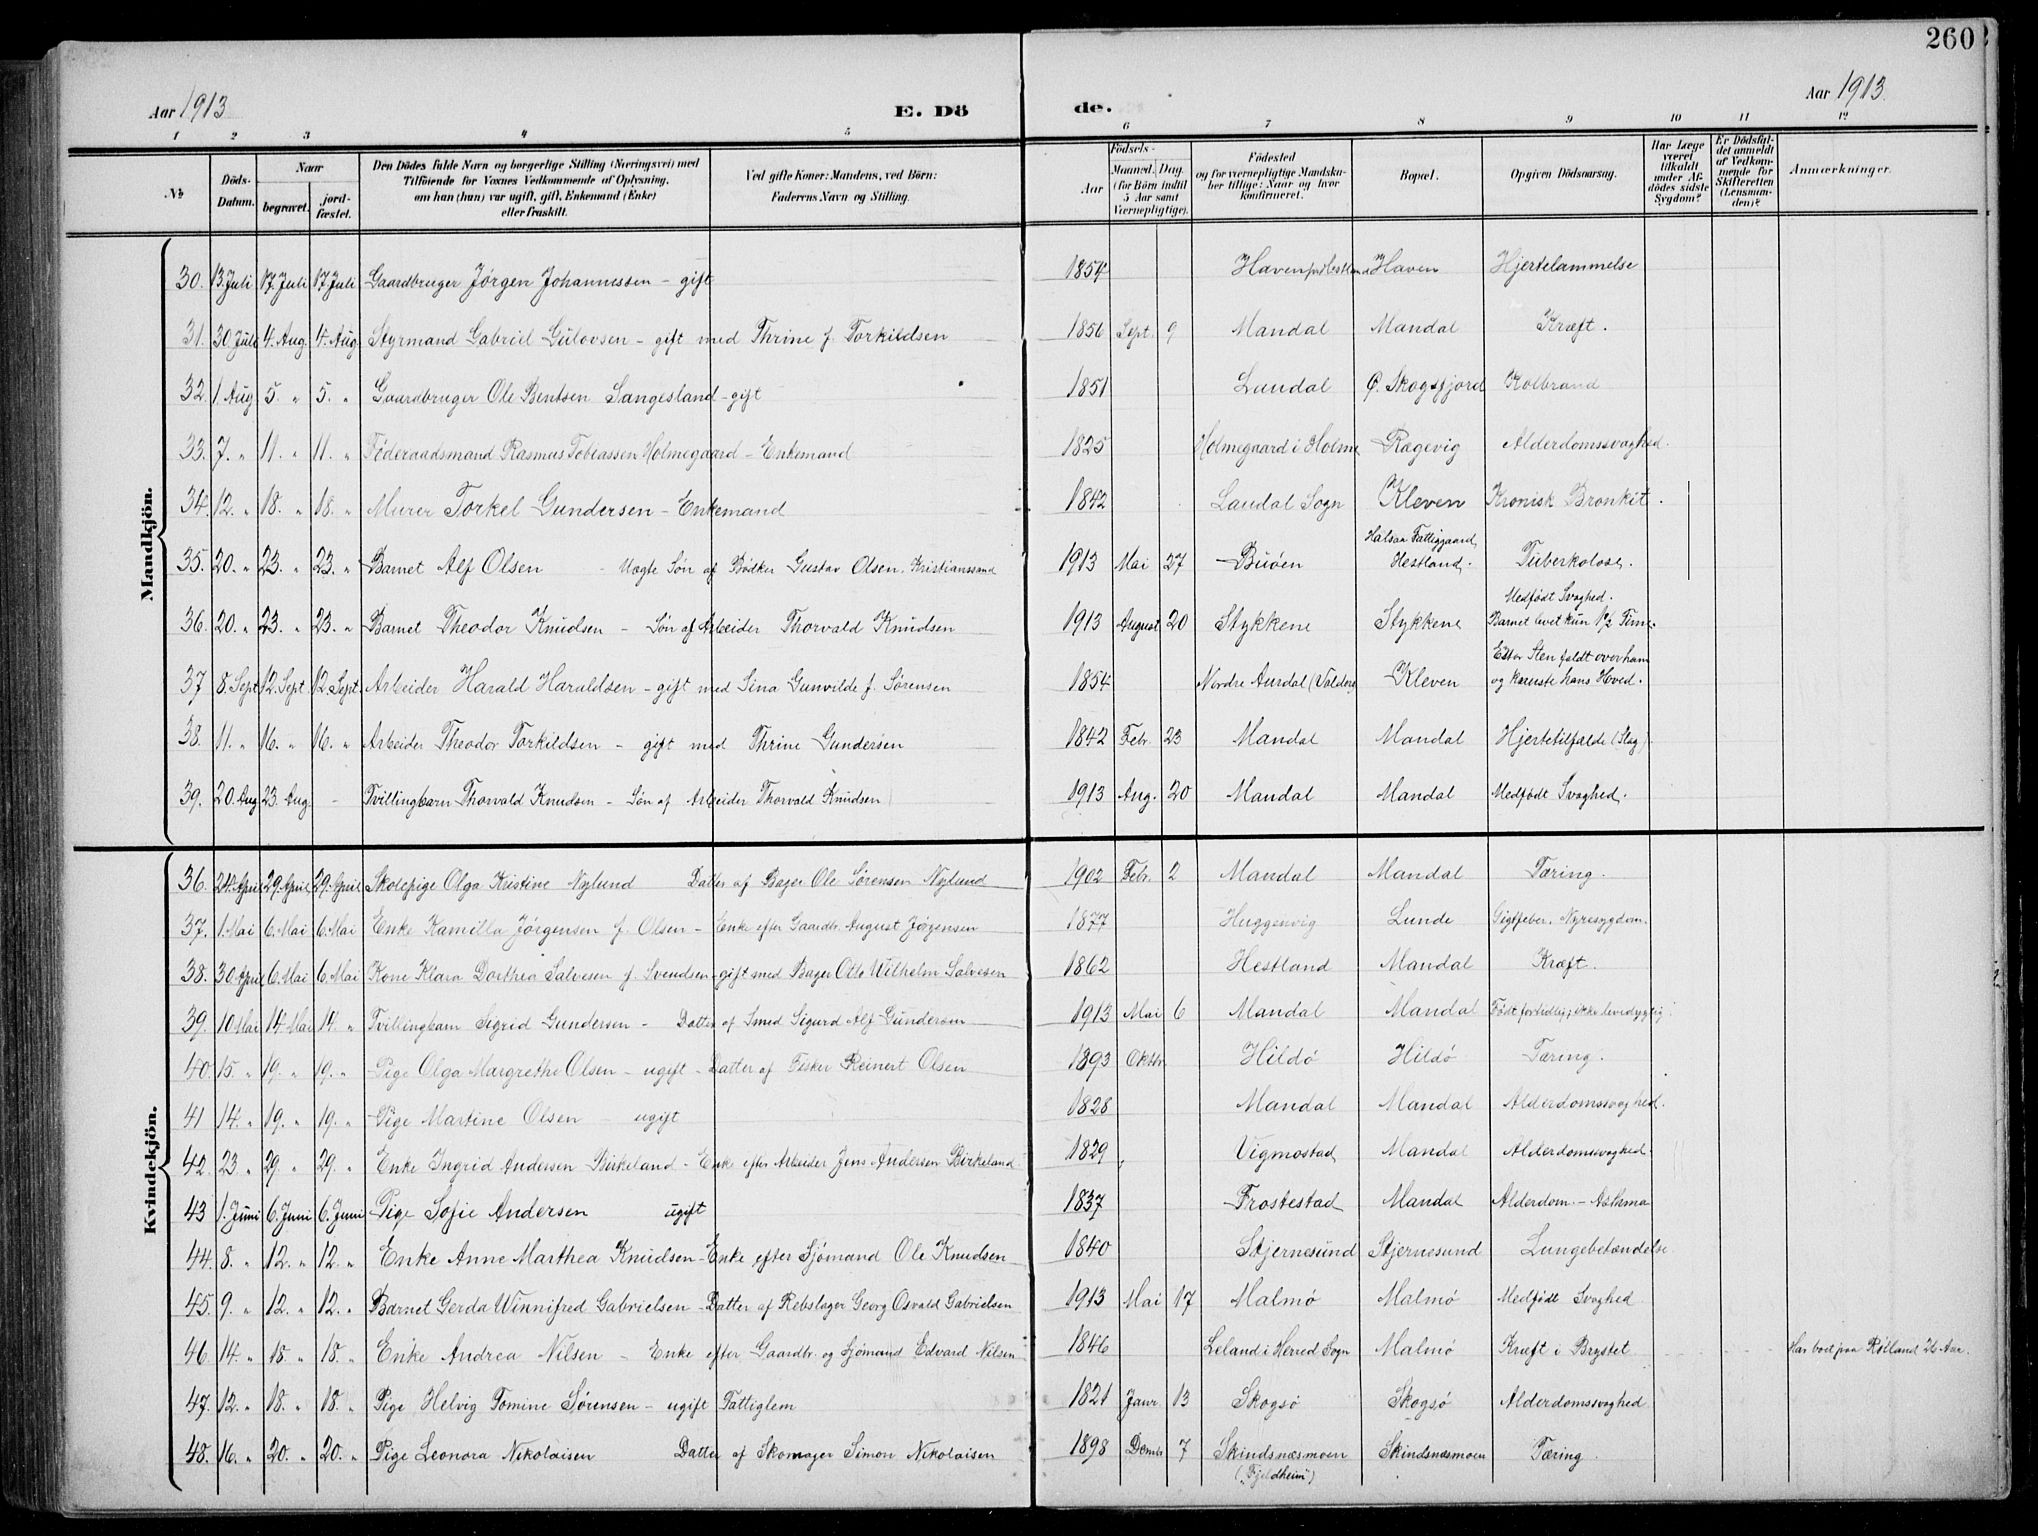 260
Aar 1913 E. Dö de. Aar 1913.
1 2 3 4 5 6 7 8 9 10 11 12
No. Döds-Datum. Naar begravet. jord-fæstet. Den Dödes fulde Navn og borgerlige Stilling (Næringsvei) med Tilföiende for Voxnes Vedkommende af Oplysning, om han (hun) var ugift, gift, Enkemand (Enke) eller fraskilt. Ved gifte Koner: Mandens, ved Börn: Faderens Navn og Stilling. Födsels- Aar Maaned. Dag. (for Börn indtil 5 Aar samt Værnepligtige). Födested og for værnepligtige Mandskaber tillige: Naar og hvor konfirmeret. Bopæl. Opgiven Dödsaarsag. Har Læge været tilkaldt under Afdödes sidste Sygdom? Er Dödsfaldet anmeldt af Vedkommende for Skifteretten (Lensmanden)? Anmærkninger.
Mandkjön.
30. 13. Juli 17. Juli 17. Juli Gaardbruger Jørgen Johannessen - gift 1854 Haven Haven Hjertelammelse
31. 30. Juli 4. Aug. 4. Aug. Styrmand Gabriel Gulovsen - gift med Thrine f. Torkildsen 1856 Sept. 9 Mandal Mandal Kræft.
32. 1. Aug 5. " 5. " Gaardbruger Ole Bentsen Sangesland - gift 1851 Lundal Ø. Skogsfjord Kolbrand
33. 7. " 11. " 11. " Föderaadsmand Rasmus Tobiassen Holmegaard - Enkemand 1825 Holmegaard i Holme Ragevig Alderdomssvaghed.
34. 12. " 18. " 18. " Murer Torkel Gundersen - Enkemand 1842 Laudal Sogn Kleven Kronisk Bronkit.
35. 20. " 23. " 23. " Barnet Alf Olsen - Uægte Søn af Bødker Gustav Olsen. Kristianssand 1913 Mai 27 Buøen Halsaa Fattiggaard, Hestland. Tuberkolose.
36. 20. " 23. " 23. " Barnet Theodor Knudsen - Søn af Arbeider Thorvald Knudsen 1913 August 20 Stykkene Stykkene Medfødt Svaghed. Barnet levet kun 1½ Time.
37 8. Sept 12. Sept 12. Sept. Arbeider Harald Haraldsen - gift med Sina Gunvilde f. Sørensen 1854 Nordre Aurdal (Valders) Kleven En stor Sten faldt over ham og knuste hans Hoved.
38. 11. " 16. " 16. " Arbeider Theodor Torkildsen - gift med Thrine Gundersen 1842 Febr. 23 Mandal Mandal Hjertetilfælde (Slag).
39. 20. Aug 23. Aug. - Tvillingbarn Thorvald Knudsen - Søn af Arbeider Thorvald Knudsen 1913 Aug. 20 Mandal Mandal Medfødt Svaghed.
Kvindekjön.
36. 24. April 29. April 29. April Skolepige Olga Kristine Nylund Datter af Bager Ole Sørensen Nylund 1902 Febr. 2 Mandal Mandal Tæring.
37. 1. Mai 6. Mai 6. Mai Enke Kamilla Jørgensen f. Olsen - Enke efter Gaardbr. August Jørgensen 1877 Huggenvig Lunde Gigtfeber. Nyresygdom.
38. 30. April 6. Mai 6. Mai Kone Klara Dorthea Salvesen f. Svendsen - gift med Bager Otto Wilhelm Salvesen 1862 Hestland Mandal Kræft.
39. 10 Mai 14. Mai 14. " Tvillingbarn Sigrid Gundersen - Datter af Smed Sigurd Alf Gundersen 1913 Mai 6 Mandal Mandal Født fortidlig; ikke levedygtig.
40. 15. " 19. " 19. " Pige Olga Margrethe Olsen - ugift - Datter af Fisker Reinert Olsen 1893 Oktbr Hildø Hildø Tæring.
41 14. " 19. " 19. " Pige Martine Olsen - ugift 1828 Mandal Mandal Alderdomssvaghed.
42. 23 " 29 " 29. " Enke Ingrid Andersen Birkeland - Enke efter Arbeider Jens Andersen Birkeland 1829 Vigmostad Mandal Alderdomssvaghed.
43 1. Juni 6. Juni 6. Juni Pige Sofie Andersen ugift 1837 Frostestad Mandal Alderdom - Asthma
44. 8. " 12. " 12. " Enke Anne Marthea Knudsen - Enke efter Sjømand Ole Knudsen 1840 Stjernesund Stjernesund Lungebetændelse
45. 9. " 12. " 12. " Barnet Gerda Winnifred Gabrielsen - Datter af Rebslager Georg Osvald Gabrielsen 1913 Mai 17 Malmø Malmø Medfødt Svaghed
46. 14. " 18. " 18. " Enke Andrea Nilsen - Enke efter Gaardbr. og Sjømand Edvard Nilsen 1846 Leland i Herred Sogn Malmø Kræft i Brystet Har boet paa Rølland 26 Aar.
47. 12. " 18. " 18. " Pige Helvig Tomine Sørensen - ugift Fattiglem 1821 Janr. 13 Skogsø Skogsø Alderdomssvaghed
48. 16. " 20. " 20. " Pige Leonora Nikolaisen Datter af Skomager Simon Nikolaisen 1898 Decmbr 7 Skindsnæsmoen ("Fjeldheim") Skindsnæsmoen Tæring.